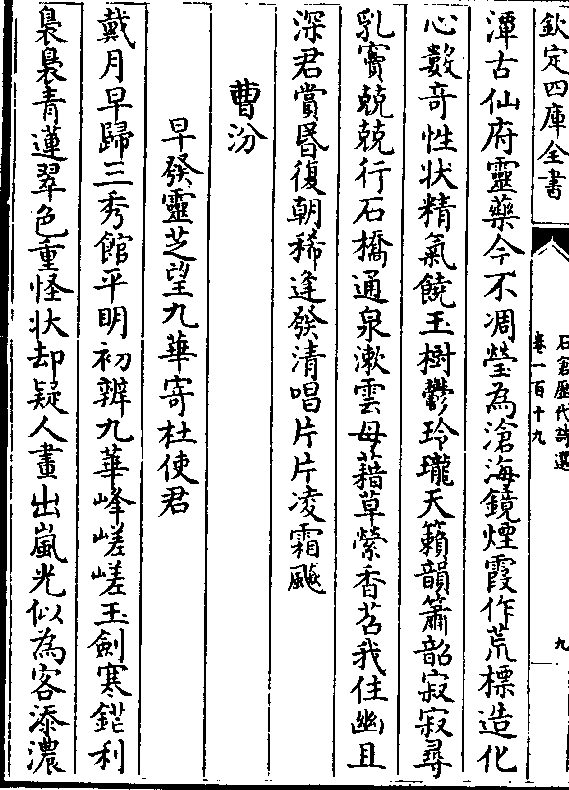 欽定四庫全書
石倉歷代詩選
卷一百十九
九
潭古仙府靈藥今不凋瑩為滄海鏡煙霞作荒標造化
心數奇性狀精氣饒玉樹鬱玲瓏天籟韻簫韶寂寂尋
乳竇兢兢行石橋通泉漱雲母藉草縈香苕我住幽且
深君賞昏復朝稀逢發清唱片片凌霜飈
曹汾
早發靈芝望九華寄杜使君
戴月早歸三秀館平明初辨九華峰嵯嵯玉劍寒鋩利
裊裊青蓮翠色重怪狀却疑人畫出嵐光似為客添濃